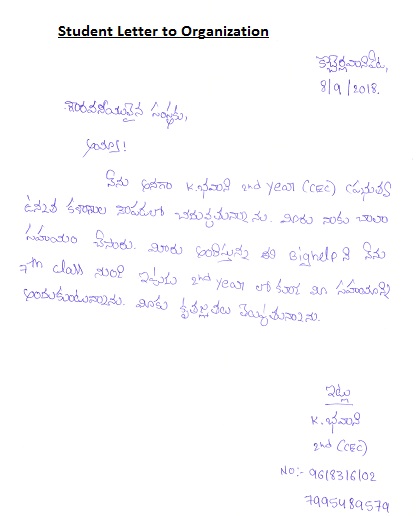 Student Letter to Organization
8/9/2018.
గౌరవనీయులైన సంస్థకు,
అయ్యా!
నేను అనగా K. భవాని 2nd year (CEC) ప్రభుత్వ
ఉన్నత కళాశాల లో చదువుతున్నాను. మీరు నాకు చాలా
సహాయం చేసారు. మీరు అందిస్తున్న ఈ Bighelp ని నేను
7th class నుంచి ఇప్పుడు 2nd year లో కూడా మీ సహాయాన్ని
అందుకుంటున్నాను. మీకు కృతజ్ఞతలు తెలియ్చుతున్నాను.
ఇట్లు
K. భవాని
2nd (CEC)
NO:- 9618316102
7995489579